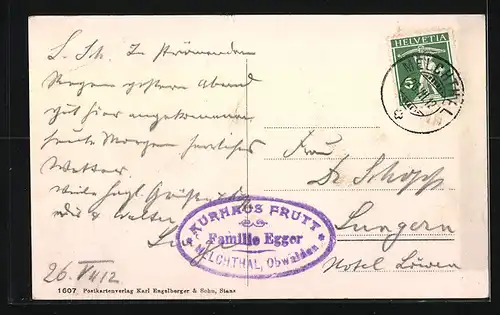 L. Sch. In strömendem
Regen gestern Abend
gut hier angekommen
heute Morgen herrliches
Wetter.
Viele herzl. Grüße
HELVETIA
5
MELCHTHAL
Frau
Dr Schopp
Lungern
Hotel Löwen
KURHAUS FRUTT
Familie Egger
MELCHTHAL, Obwalden
26. VII 12
1607 Postkartenverlag Karl Engelberger & Sohn, Stans